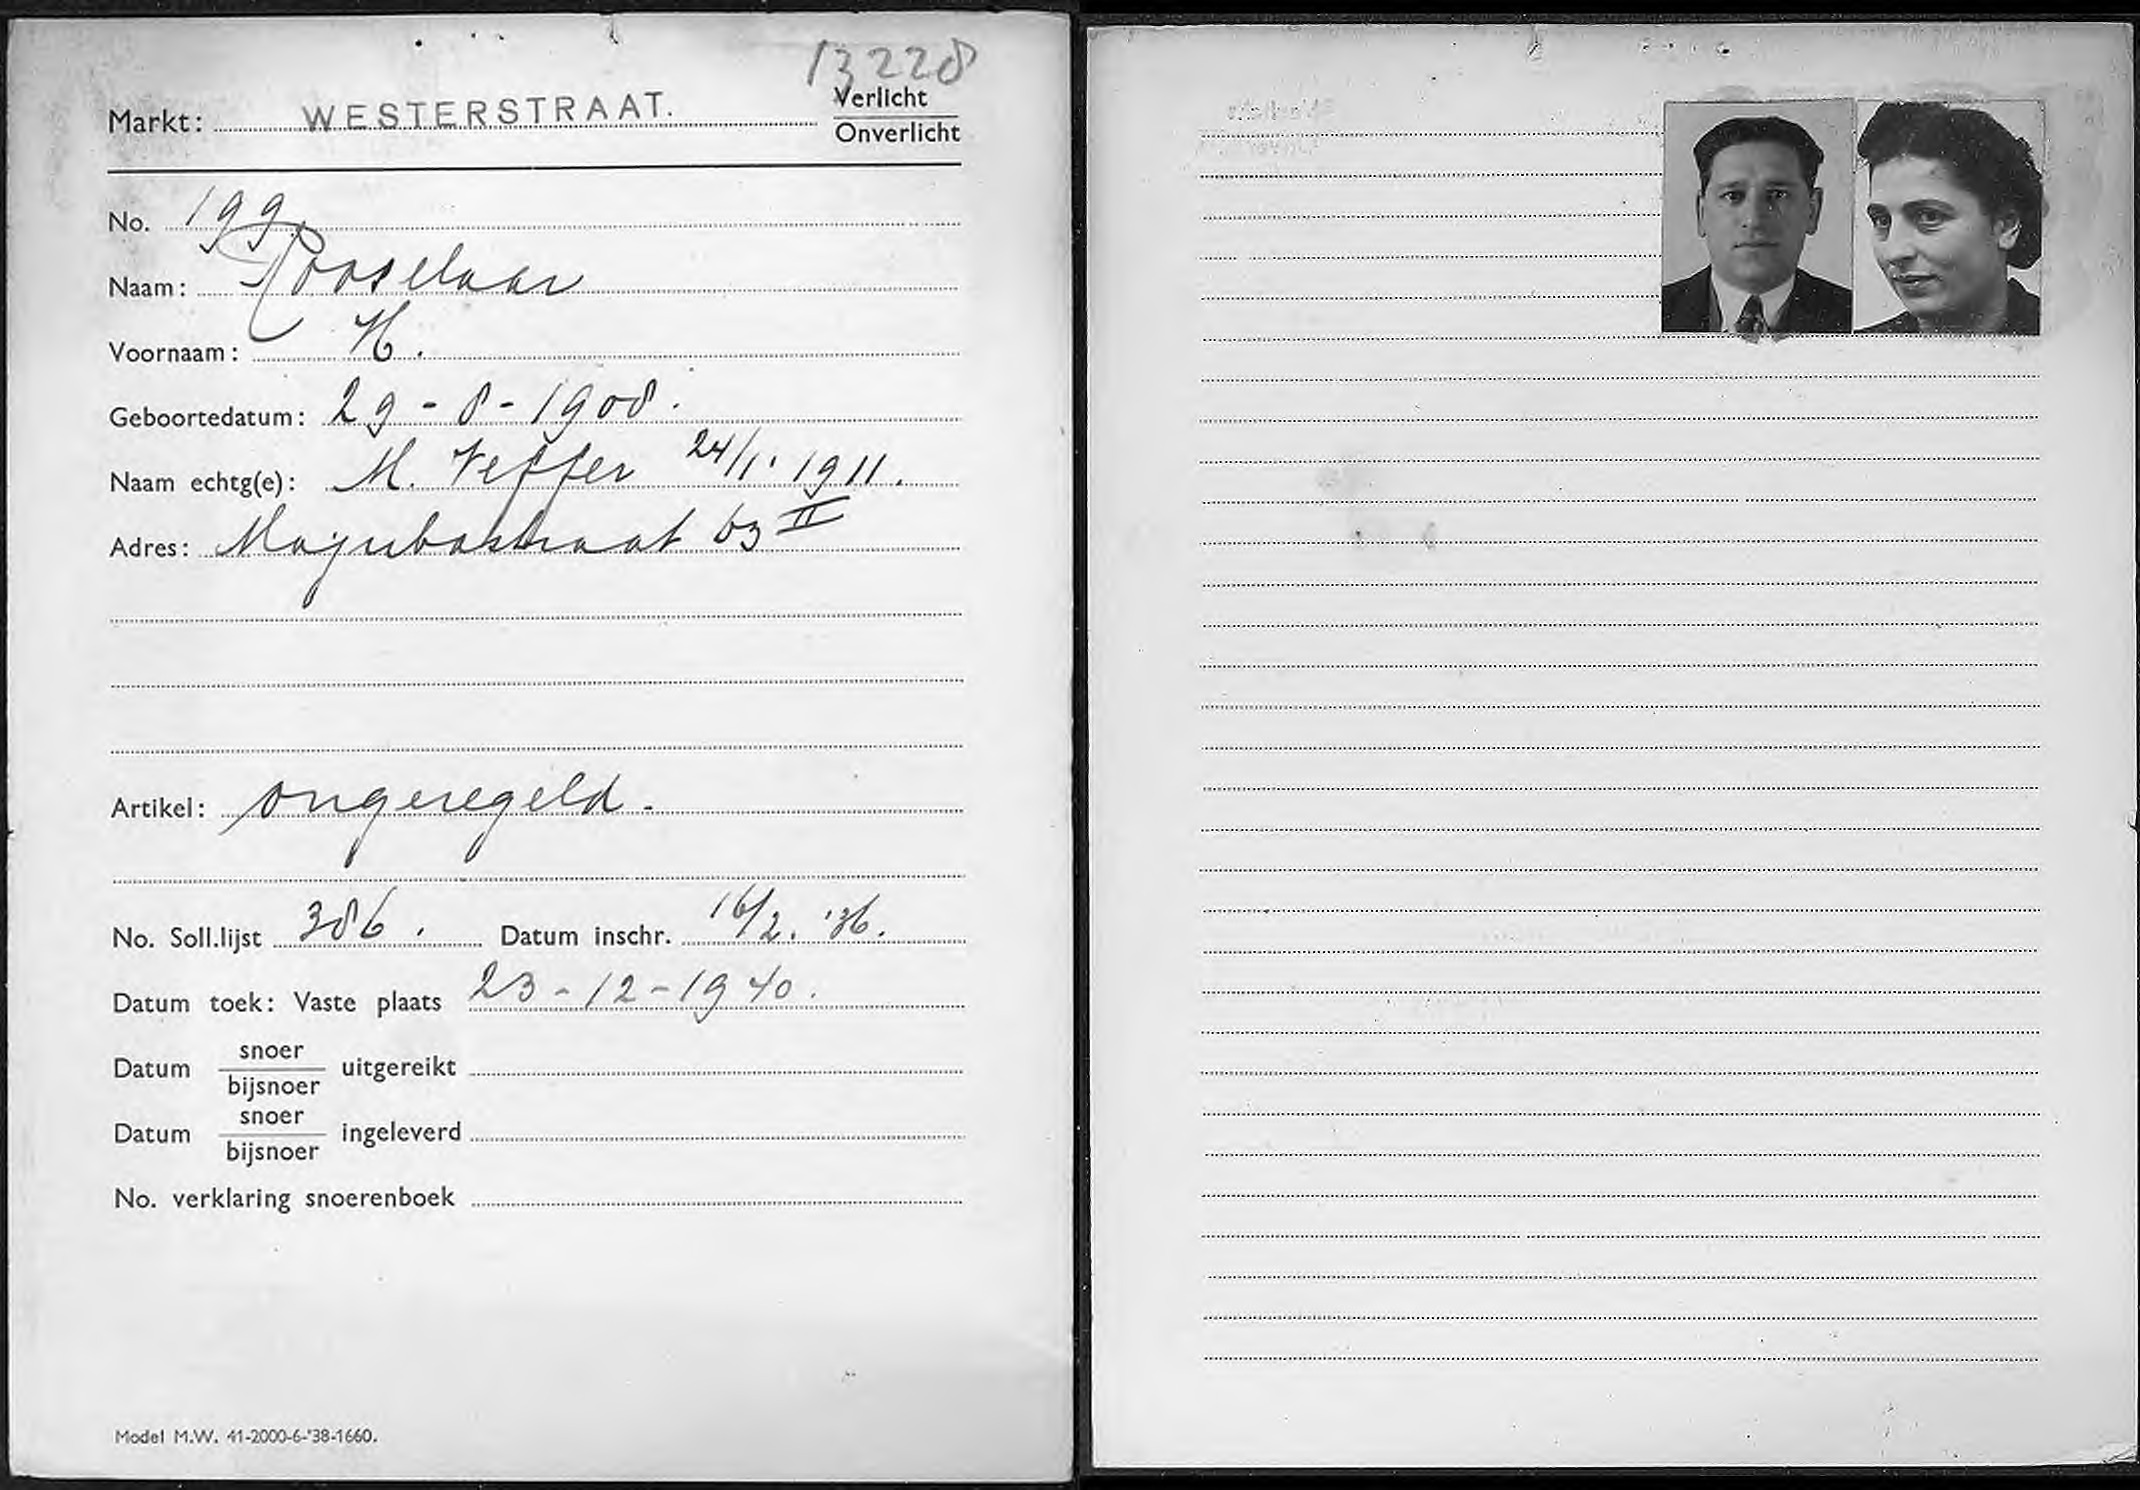 13228
Markt: WESTERSTRAAT. Verlicht
Onverlicht
No. 199.
Naam: Rooselaar
Voornaam: H.
Geboortedatum: 29-8-1908.
Naam echtg(e): M. Veffer 24/1. 1911.
Adres: Majubastraat 63 II
Artikel: ongeregeld.
No. Soll.lijst 386. Datum inschr. 16/2. '36.
Datum toek: Vaste plaats 23-12-1940.
Datum snoer
bijsnoer uitgereikt
Datum snoer
bijsnoer ingeleverd
No. verklaring snoerenboek
Model M.W. 41-2000-6-'38-1660.